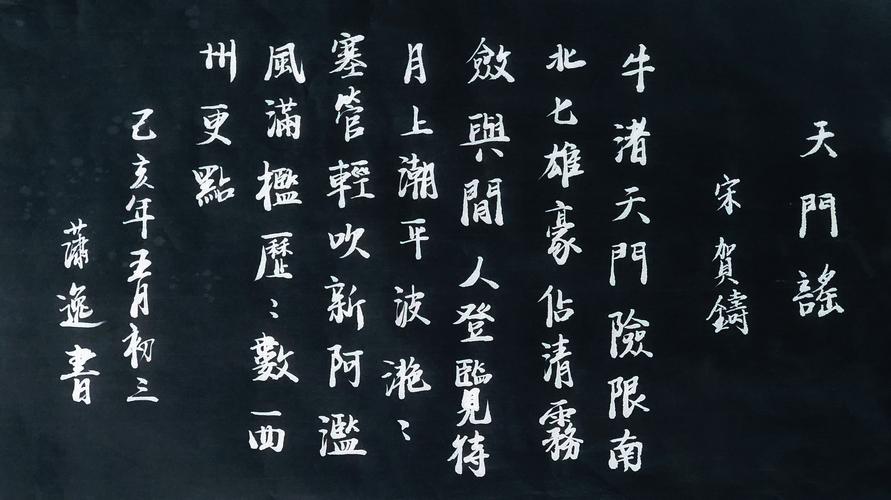 天門謠
宋賀鑄
牛渚天門險限南
北七雄豪佔清霧
斂與閒人登覽待
月上潮平波灔〻
塞管輕吹新阿濫
風滿檻歷〻數西
州更點
己亥年五月初三
蕭逸書